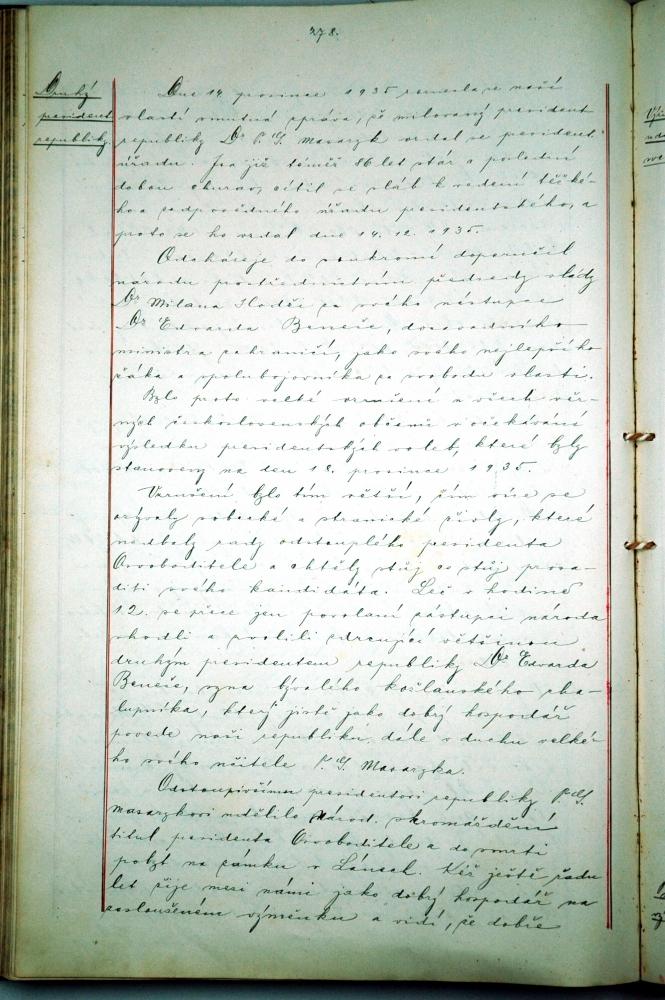 278.
Druhý
president
republiky.
Dne 14. prosince 1935 roznesla se naší
vlastí smutná zpráva, že milovaný president
republiky Dr. T. G. Masaryk vzdal se president.
úřadu. Jsa již téměř 86 let stár a poslední
dobou churav, cítil se sláb k vedení těžké-
ho a zodpovědného úřadu presidentského, a
proto se ho vzdal dne 14. 12. 1935.
Odcházeje do soukromí doporučil
národu prostřednictvím předsedy vlády
Dr. Milana Hodži za svého nástupce
Dr. Edvarda Beneše, dosavadního
ministra zahraničí, jako svého nejlepšího
žáka a spolubojovníka za svobodu vlasti.
Bylo proto velké vzrušení u všech věr-
ných československých občanů v očekávání
výsledku presidentských voleb, které byly
stanoveny na den 18. prosince 1935.
Vzrušení bylo tím větší, čím více se
ozývaly sobecké a stranické živly, které
nedbaly rady odstouplého presidenta
Osvoboditele a chtěly stůj co stůj prosa-
diti svého kandidáta. Leč v hodině
12. se přece jen povolaní zástupci národa
shodli a zvolili zdrcující většinou
druhým presidentem republiky Dr. Edvarda
Beneše, syna bývalého kožlanského cha-
lupníka, který jistě jako dobrý hospodář
povede naši republiku dále v duchu velké-
ho svého učitele T. G. Masaryka.
Odstoupivšímu presidentovi republiky T. G.
Masarykovi udělilo národ. shromáždění
titul presidenta Osvoboditele a do smrti
pobyt na zámku v Lánech. Kéž ještě řadu
let žije mezi námi jako dobrý hospodář na
zaslouženém výměnku a vidí, že dobře